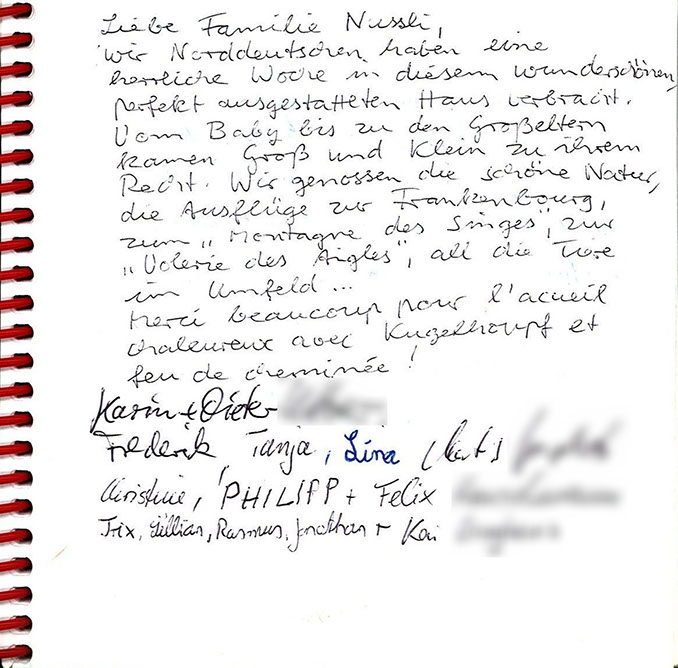 Liebe Familie Nussli,
wir Norddeutschen haben eine
herrliche Woche in diesem wunderschönen,
perfekt ausgestatteten Haus verbracht.
Vom Baby bis zu den Großeltern
kamen Groß und Klein zu ihrem
Recht. Wir genossen die schöne Natur,
die Ausflüge zur Frankenbourg,
zum „Montagne des Singes", zur
„Volerie des Aigles", all die Tiere
im Umfeld ...
Merci beaucoup pour l'acueil
chaleureux avec Kugelhoupf et
feu de cheminée!
Karin + Dieter
Frederik Tanja, Lina
Christine, PHILIPP + Felix
Trix, Lillian, Rasmus, Jonathan + Kai